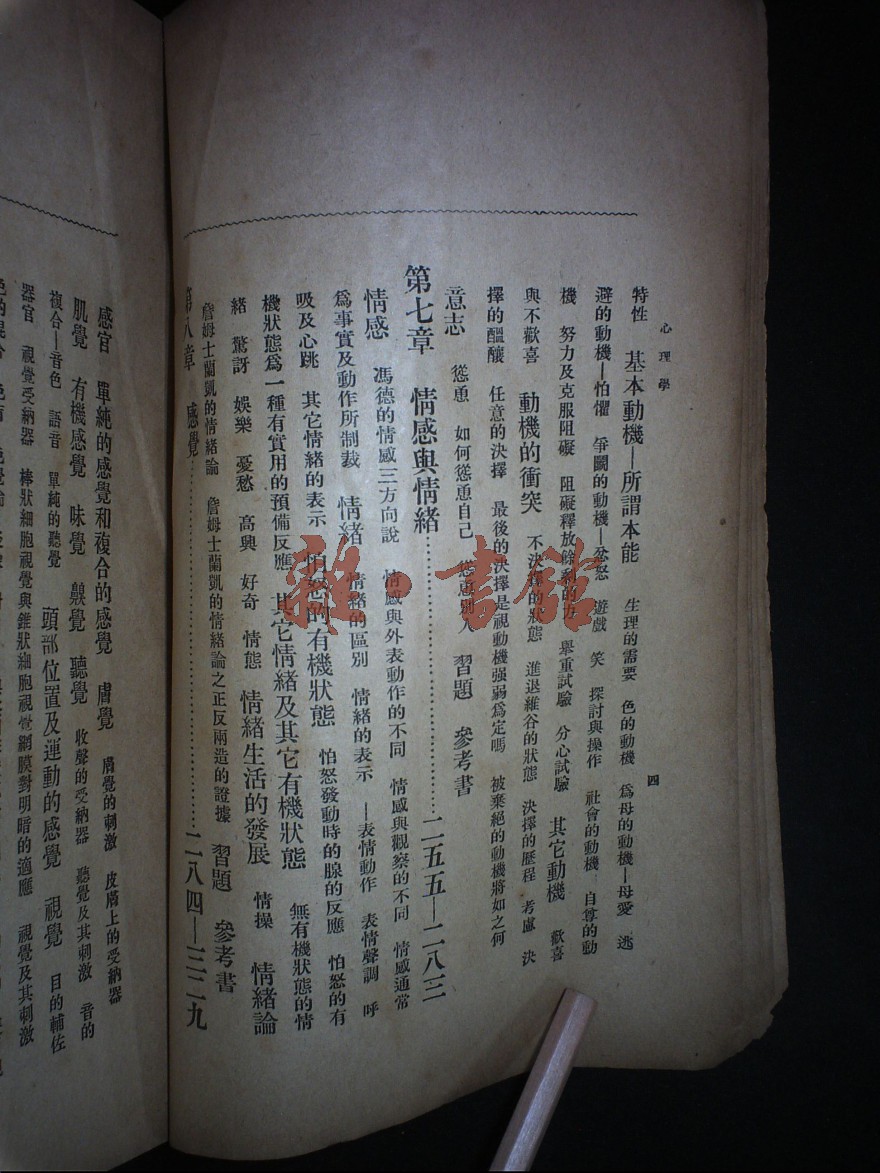 心理學
四
特性 基本動機—所謂本能 生理的需要 色的動機 爲母的動機—母愛 逃
避的動機—怕懼 爭鬭的動機—忿怒 遊戲 笑 探討與操作 社會的動機 自尊的動
機 努力及克服阻礙 阻礙釋放餘剩的力 舉重試驗 分心試驗 其它動機 歡喜
與不歡喜 動機的衝突 不決擇的狀態 進退維谷的狀態 決擇的歷程 考慮 決
擇的醞釀 任意的決擇 最後的決擇是視動機强弱爲定嗎 被棄絕的動機將如之何
意志 慫恿 如何慫恿自己 慫恿別人 習題 參考書
第七章 情感與情緒……二五五—二八三
情感 馮德的情感三方向說 情感與外表動作的不同 情感與觀察的不同 情感通常
爲事實及動作所制裁 情緒 情緒的區別 情緒的表示 —表情動作 表情聲調 呼
吸及心跳 其它情緒的表示 怕怒的有機狀態 怕怒發動時的腺的反應 怕怒的有
機狀態爲一種有實用的預備反應 其它情緒及其它有機狀態 無有機狀態的情
緒 驚訝 娛樂 憂愁 高興 好奇 情態 情緒生活的發展 情操 情緒論
詹姆士蘭凱的情緒論 詹姆士蘭凱的情緒論之正反兩造的證據 習題 參考書
第八章 感覺……二八四—三二九
感官 單純的感覺和複合的感覺 膚覺 膚覺的刺激 皮膚上的受納器
肌覺 有機感覺 味覺 齅覺 聽覺 收聲的受納器 聽覺及其刺激 音的
複合—音色 語音 單純的聽覺 頭部位置及運動的感覺 視覺 目的輔佐
器官 視覺受納器 棒狀細胞視覺與錐狀細胞視覺 網膜對明暗的適應 視覺及其刺激
雜·書館